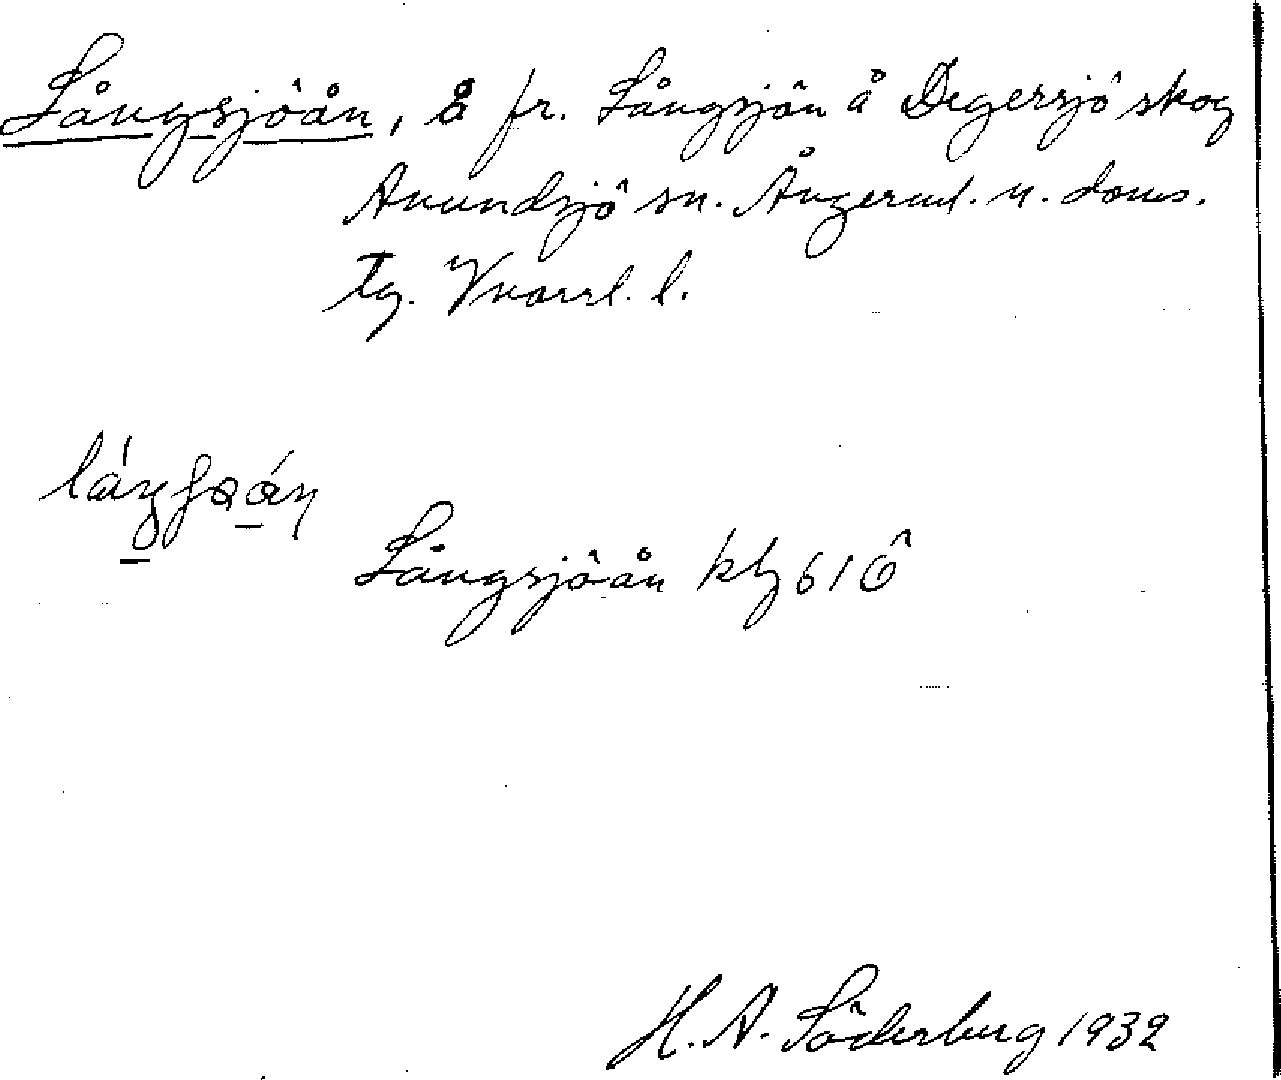 Långsjöån, å fr. Långsjön å Degersjö skog
Anundsjö sn. Ångerml. n. doms.
tg. Vnorrl. l.
Långsjöån
H. A. Söderberg 1932